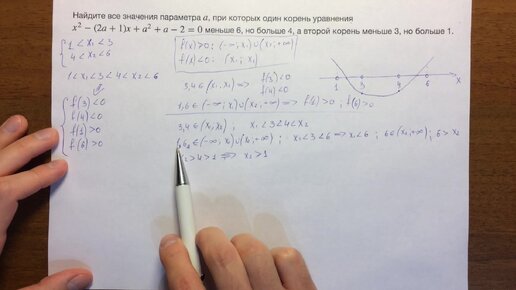 Найдите все значения параметра a, при которых один корень уравнения
x² − (2a + 1)x + a² + a − 2 = 0 меньше 6, но больше 4, а второй корень меньше 3, но больше 1.
1 < x₁ < 3
4 < x₂ < 6
1 < x₁ < 3 < 4 < x₂ < 6
f(3) < 0
f(4) < 0
f(1) > 0
f(6) > 0
f(x) > 0 : (-∞; x₁) ∪ (x₂; +∞)
f(x) < 0 : (x₁; x₂)
3,4 ∈ (x₁; x₂) ⇒ f(3) < 0
f(4) < 0
1,6 ∈ (-∞; x₁) ∪ (x₂; +∞) ⇒ f(6) > 0; f(1) > 0
3,4 ∈ (x₁; x₂) ; x₁ < 3 < 4 < x₂
∈ (-∞; x₁) ∪ (x₂; +∞) ; x₁ < 3 < 6 ⇒ x₁ < 6 ; 6 ∈ (x₂; +∞) ; 6 > x₂
x₂ > 4 > 1 ⇒ x₂ > 1
1 3 4 6 x